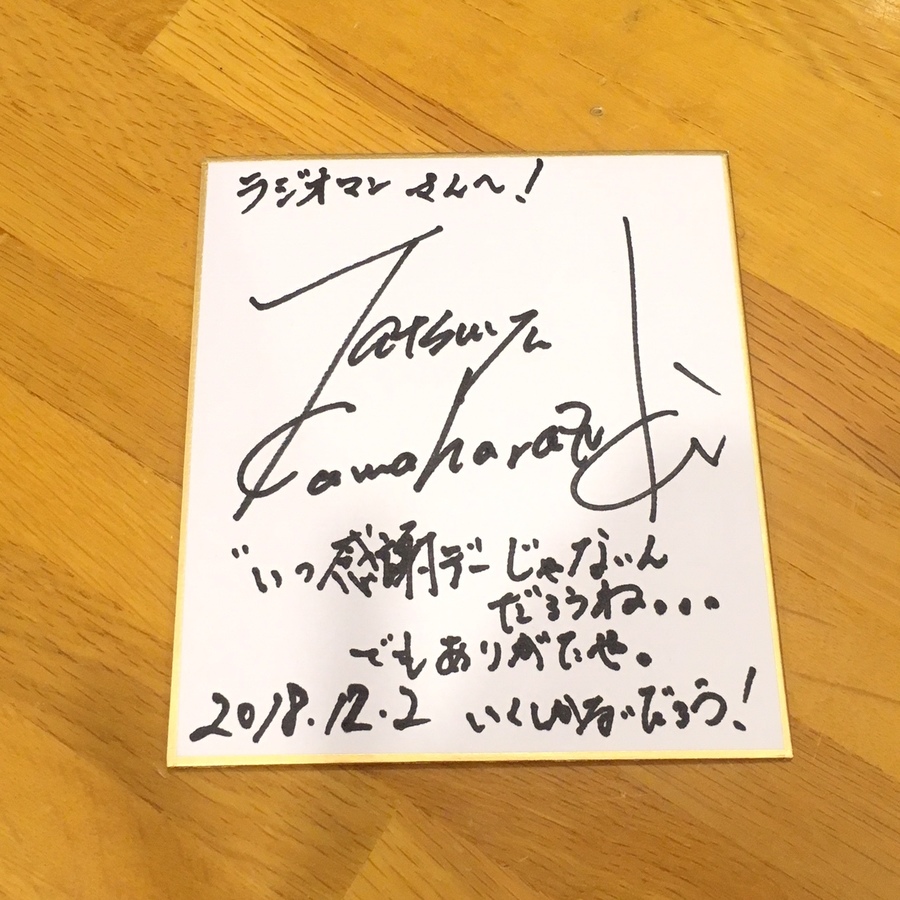 ラジオマンさんへ!
Tatsuya
Kawaharazuki
"いつ感謝デーじゃないん
だろうね...
でもありがたや。
2018.12.2 いくしかないだろう!